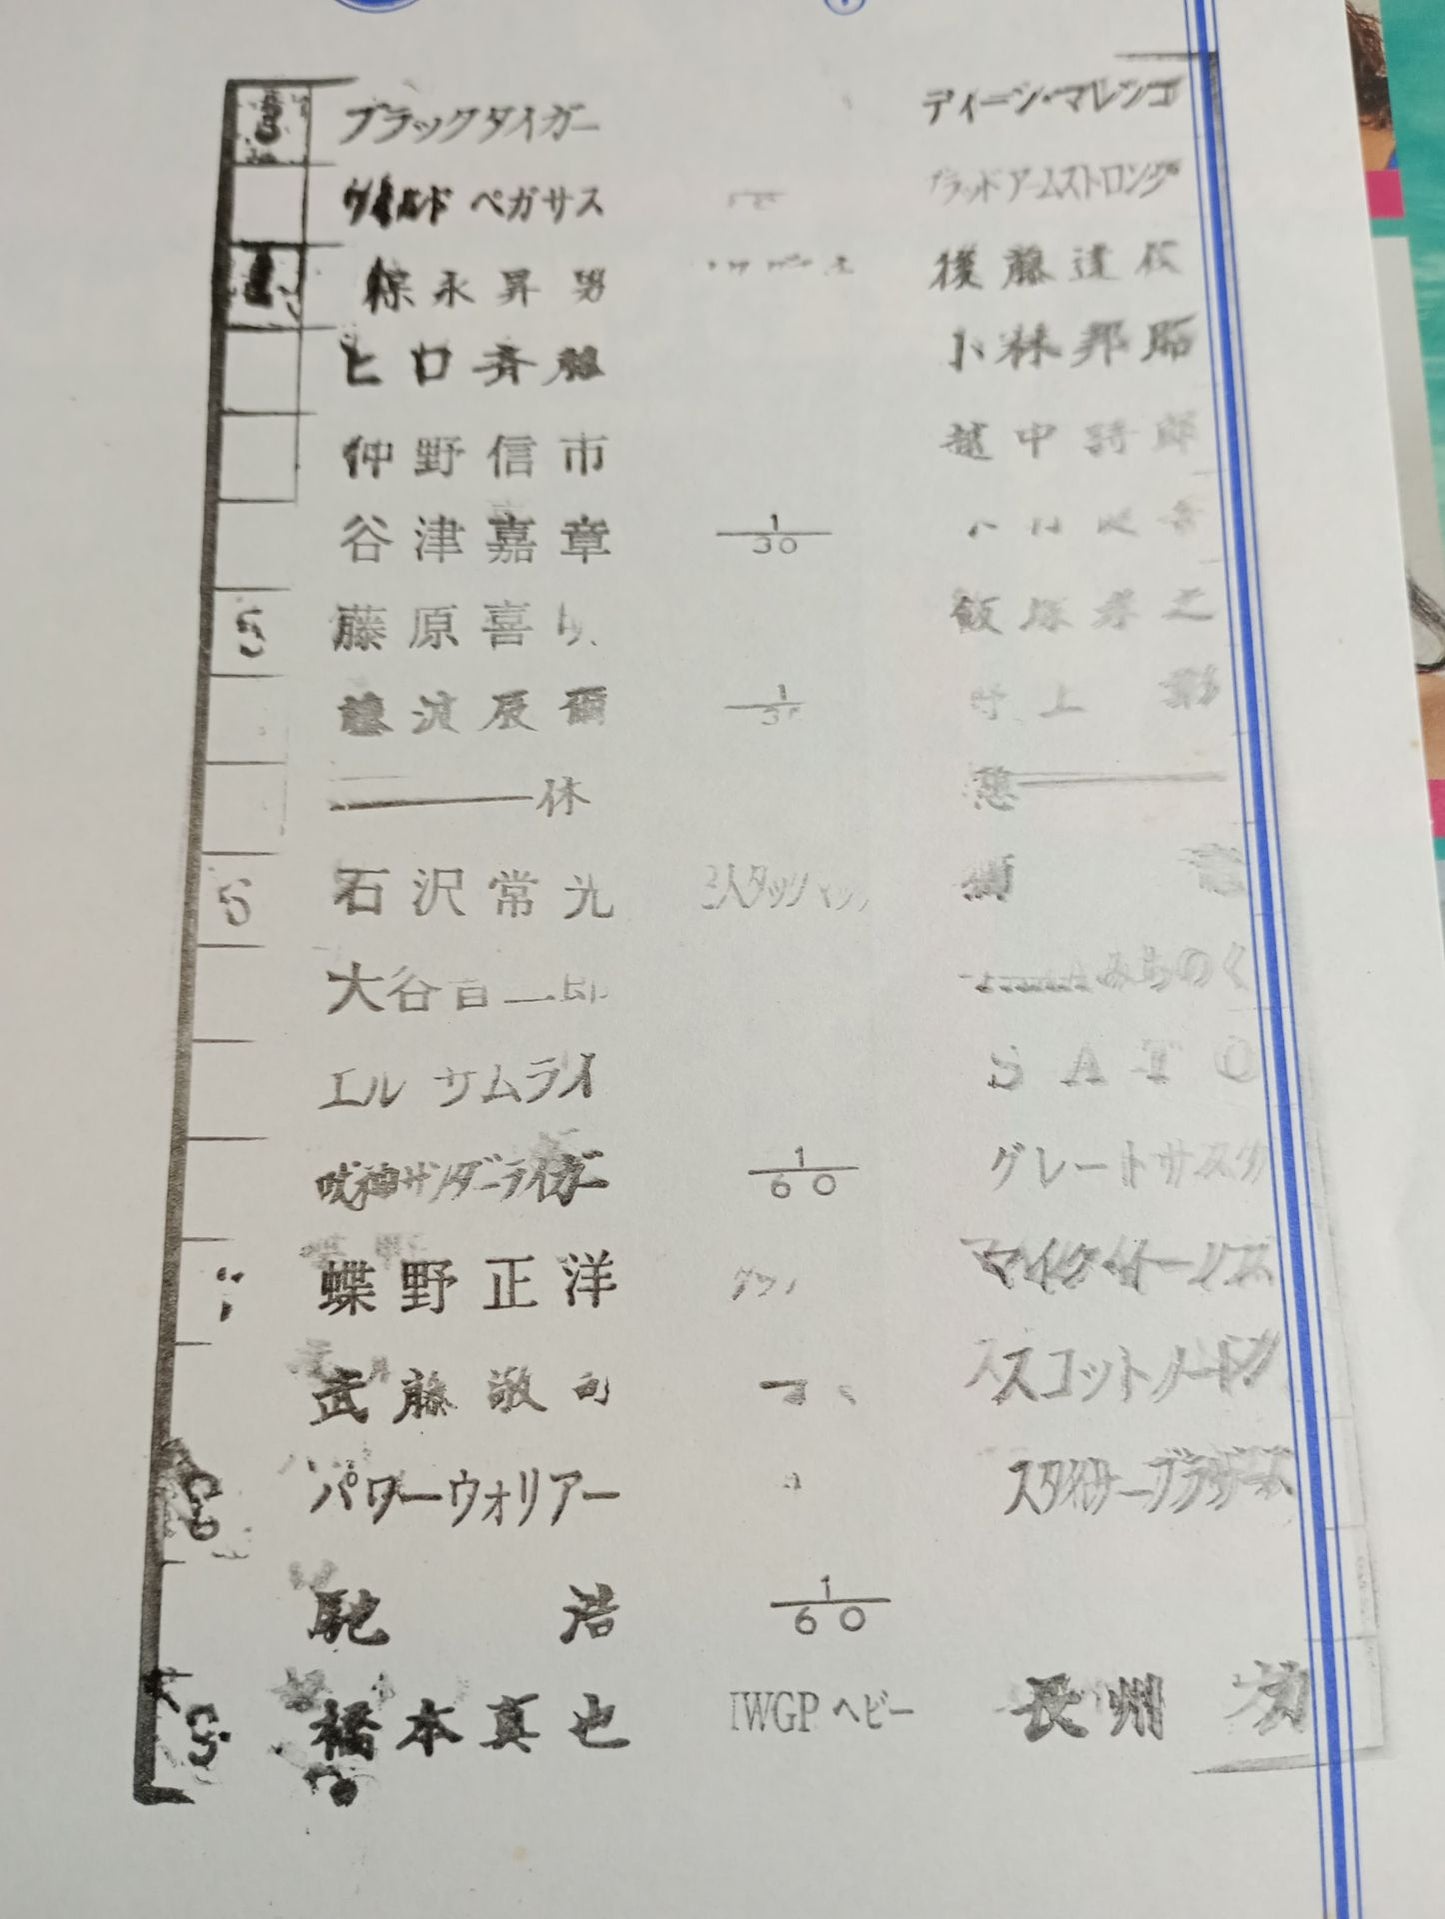 ブラックタイガー ディーン・マレンコ
ワイルド ペガサス ブラッドアームストロング
保永昇男 後藤達俊
ヒロ斉藤 小林邦昭
仲野信市 越中詩郎
谷津嘉章 1/30
5 藤原喜明 飯塚孝之
藤波辰爾 1/3 野上 彰
休 憩
5 石沢常光 3人タッグマッチ 獅
大谷 二郎 みちのく
エル サムライ SATO
獣神サンダーライガー 1/60 グレートサスケ
蝶野正洋 マイクイーノス
武藤敬司 スコットノートン
パワーウォリアー スタイナーブラザーズ
馳 浩 1/60
橋本真也 IWGP ヘビー 長州 力